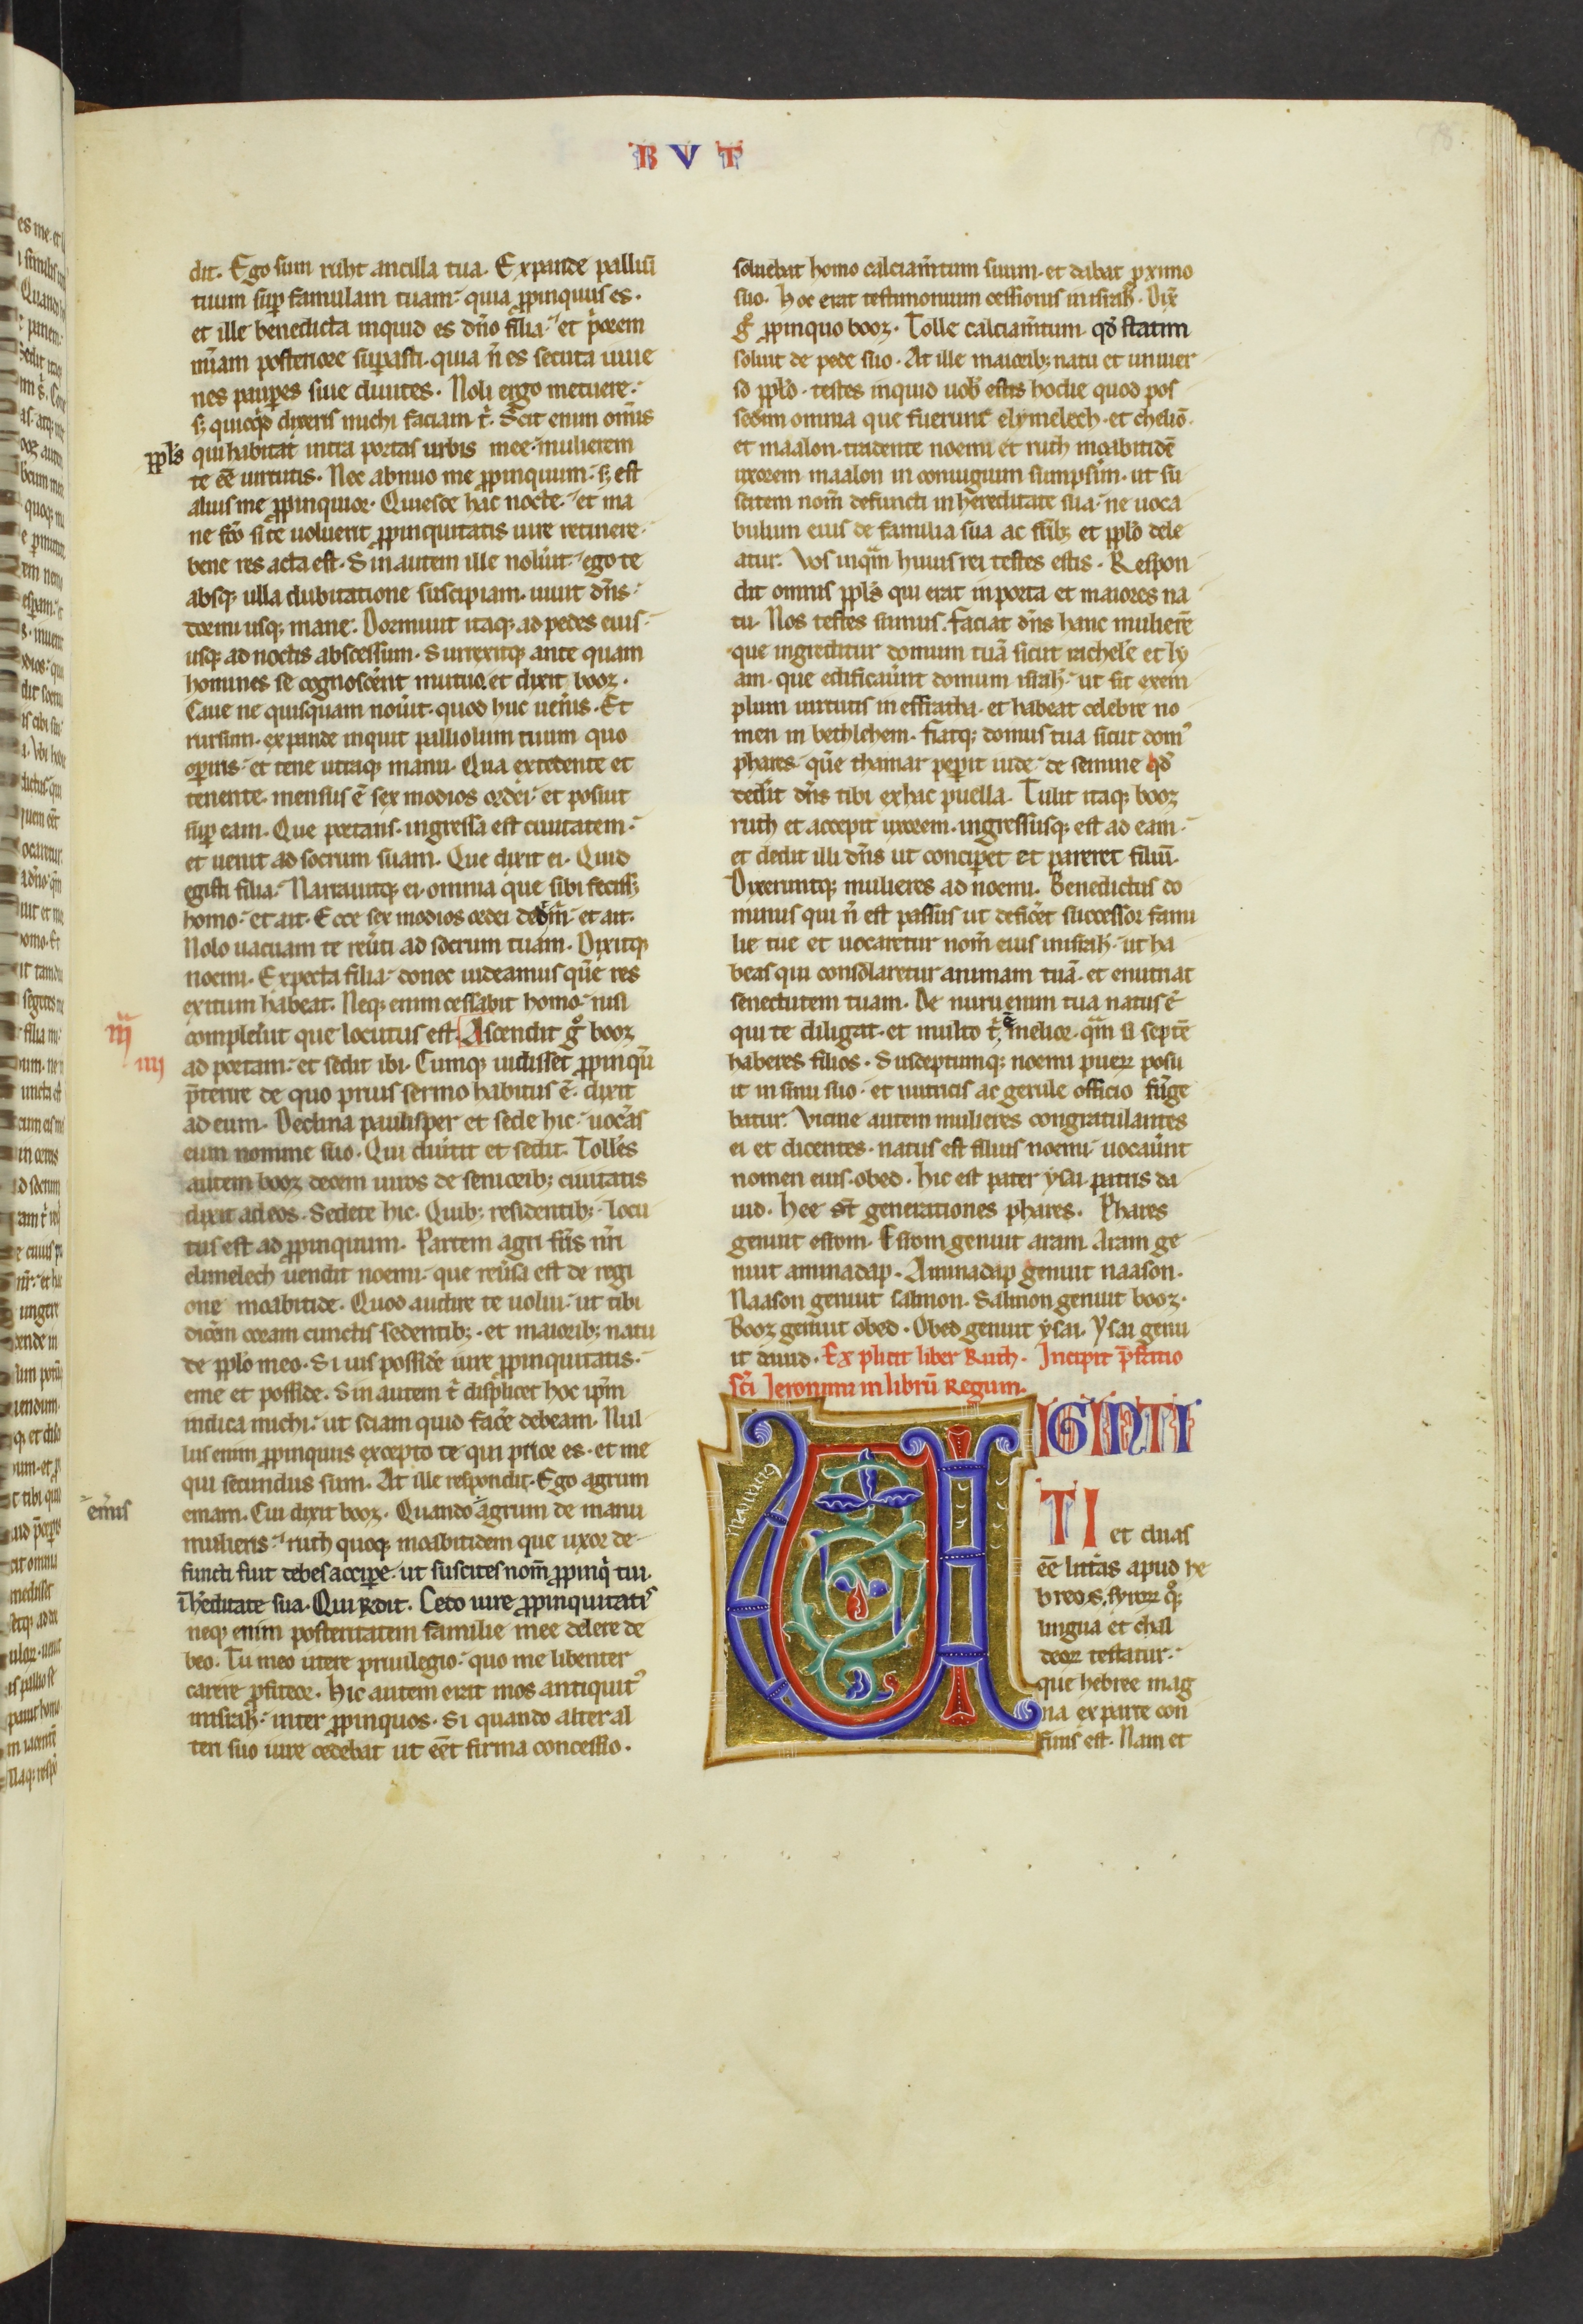 RVT
dit. Ego sum ruht ancilla tua. Expande palliū
tuum suꝑ famulam tuam: quia ꝓpinquus es.
et ille benedicta inquid es dño filia: et p̃orem
mīam posteriore suꝑasti. quia ñ es secuta iuue
nes pauꝑes siue diuites. Noli ergo metuere:
sꝫ quicqͥd dixeris michi faciam tͥ. Scit enim omīs
ppĺs qui habitat intra portas urbis mee: mulierem
te eē uirtutis. Nec abnuo me ꝓpinquum. sꝫ est
alius me ꝓpinquior. Quiesce hac nocte: et ma
ne fcō si te uoluerit ꝓpinquitatis iure retinere.
bene res acta est. Sin autem ille noluīt: ego te
absqꝫ ulla dubitatione suscipiam. uiuit dñs:
dormi usqꝫ mane. Dormiuit itaqꝫ ad pedes eius.
usqꝫ ad noctis abscessum. Surrexitqꝫ ante quam
homines se cognoscēnt mutuo. et dixit booz.
Caue ne quisquam nouīt. quod huc uenīs. Et
rursum. expande inquit palliolum tuum quo
oꝑiris: et tene utraqꝫ manu. Qua extedente et
tenente. mensus ē sex modios ordei: et posuit
suꝑ eam. Que portans. ingressa est ciuitatem:
et uenit ad socrum suam. Que dixit ei. Quid
egisti filia: Narrauitqꝫ ei. omnia que sibi fecissꝫ
homo: et ait. Ecce sex modios ordei dedͥ m̃: et ait.
Nolo uacuam te reūti ad socrum tuam. Dixitqꝫ
noemi. Expecta filia: donec uideamus quē res
exitum habeat. Neqꝫ enim cessabit homo: nisi
compleuīt que locutus est. Ascendit gͦ booz
iiii
ad portam: et sedit ibi. Cumqꝫ uidisset ꝓpinqū
p̄terire de quo prius sermo habitus ē. dixit
ad eum. Declina paulisper et sede hic: uocās
eum nomine suo. Qui diuītit et sedit. Tollēs
autem booz decem uiros de seniorib; ciuitatis
dixit ad eos. Sedete hic. Quib; residentib;: locu
tus est ad ꝓpinquum. Partem agri frīs nrī
elimelech uendit noemi: que reūsa est de regi
one moabitide. Quod audire te uolui: ut tibi
dicēm coram cunctis sedentib;. et maiorib; natu
de ppĺo meo. Si uis possidē iure ꝓpinquitatis.
eme et posside. Sin autem tͥ displicet hoc ip̄m
indica michi: ut sciam quid facē debeam. Nul
lus enim ꝓpinquus excepto te qui prior es. et me
qui secundus sum. At ille respondit. Ego agrum
emēis
emam. Cui dixit booz. Quando agrum de manu
mulieris: ruth quoqꝫ moabitidem que uxor de
functi fuit debes acciꝑe. ut suscites nom̄ ꝓpinqͥ tui.
ī hēditate sua. Qui Rdit. Cedo iure ꝓpinquitatis
neqꝫ enim posteritatem familie mee delere de
beo. Tu meo utere priuilegio: quo me libenter
carere ꝓfiteor. Hic autem erat mos antiquitꝰ
in isrāĥ: inter ꝓpinquos. Si quando alter al
teri suo iure cedebat ut eēt firma concessio.
soluebat homo calciam̄tum suum. et dabat ꝓximo
suo. Hoc erat testimonium cessionis in isrāĥ. Dix̄
gͦ ꝓpinquo booz. Tolle calciam̄tum. qd̄ statim
soluit de pede suo. At ille maiorib; natu et uniuer
so ppĺo. testes inquid uob̄ estis hodie quod pos
sedim omnia que fuerunt elymelech. et cheliō.
et maalon. tradente noemi et ruth moabitidē
uxorem maalon in coniugium sumpsim. ut su
scitem nom̄ defuncti in hereditate sua: ne uoca
bulum eius de familia sua ac frīb; et ppĺo dele
atur. Vos inqͣm huius rei testes estis. Respon
dit omnis ppĺs qui erat in porta et maiores na
tu. Nos testes sumus. faciat dñs hanc mulierē
que ingreditur domum tuā sicut rachelē et ly
am. que edificauīnt domum isrāĥ: ut sit exem
plum uirtutis in effratha. et habeat celebre no
men in bethlehem. fiatqꝫ domus tua sicut domꝰ
phares. quē thamar peꝑit iude: de semine qd̄
dedīt dñs tibi ex hac puella. Tulit itaqꝫ booz
ruth et accepit uxorem. ingressusqꝫ est ad eam.
et dedit illi dñs ut conciꝑet et pareret filiū.
Dixeruntqꝫ mulieres ad noemi. Benedictus do
minus qui ñ est passus ut deficēt successor fami
lie tue et uocaretur nom̄ eius in isrāĥ: ut ha
beas qui consolaretur animam tuā. et enutriat
senectutem tuam. De nuru enim tua natus ē
qui te diligat. et multo tͥ ē melior. qͣm si septē
haberes filios. Susceptumqꝫ noemi pueꝝ posu
it in sinu suo. et nutricis ac gerule officio fūge
batur. Vicine autem mulieres congratulantes
ei et dicentes. natus est filius noemi uocauīnt
nomen eius. obed. hic est pater ysai. patris da
uid. Hee st̄ generationes phares. Phares
genuit esrom. Esrom genuit aram. Aram ge
nuit aminadap. Aminadap genuit naason.
Naason genuit salmon. Salmon genuit booz.
Booz genuit obed. Obed genuit ysai. Ysai genu
it dauid. Explicit liber Ruth. Incipit p̄fatio
sc̄i Jeronimi in librū Regum.
VIGINTI
TI et duas
eē litt̄as apud he
breos. syroꝝ qͦꝫ
lingua et chal
deoꝝ testatur:
que hebree mag
na ex parte con
finis est. Nam et